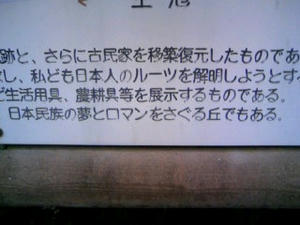 跡と、さらに古民家を移築復元したものであ
し、私ども日本人のルーツを解明しようとす
ど生活用具、農耕具等を展示するものである。
日本民族の夢とロマンをさぐる丘でもある。